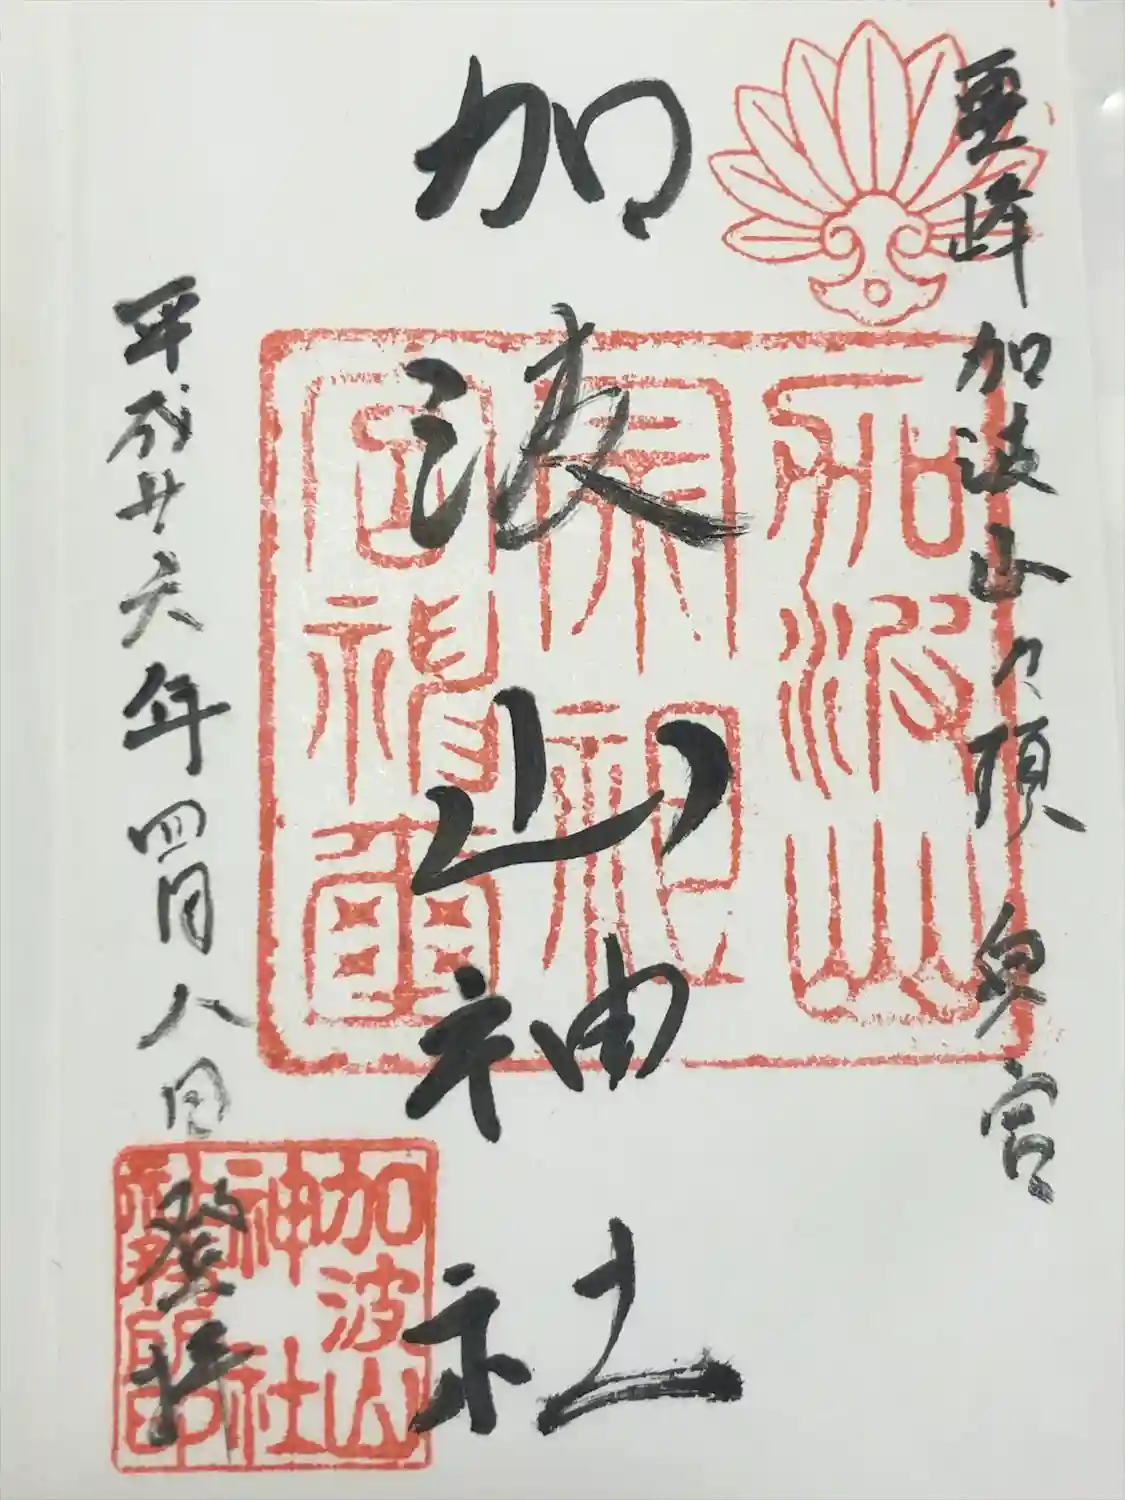 霊峰 加波山々頂 奥宮
加波山神社
平成廿六年四月八日 登拝
加波山
神社
社務所印